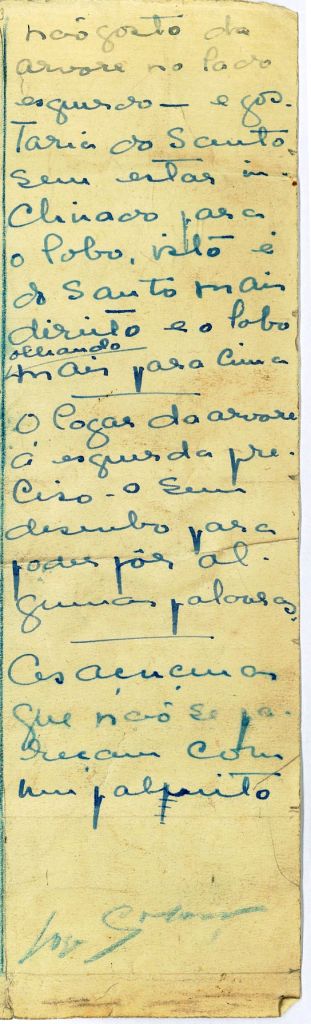 não gosto da
arvore no lado
esquerdo — e gos-
taria do Santo
sem estar in-
clinado para
o lobo, isto é
do Santo mais
direito e o lobo
olhando
mais para cima
O logar da arvore
á esquerda pre-
ciso-o sem
desenho para
poder pôr al-
gumas palavras.
As açucenas
que não se pa-
reçam com
um palmito